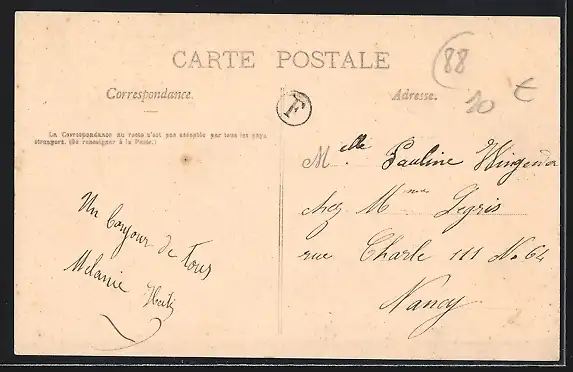 CARTE POSTALE
Correspondance.
Adresse.
La Correspondance au recto n'est pas acceptée par tous les pays
étrangers. (Se renseigner à la Poste.)
F
88
10 €
Melle Pauline
chez Mme Legris
rue Charle III No 64
Nancy
Un bonjour de tous
Melanie